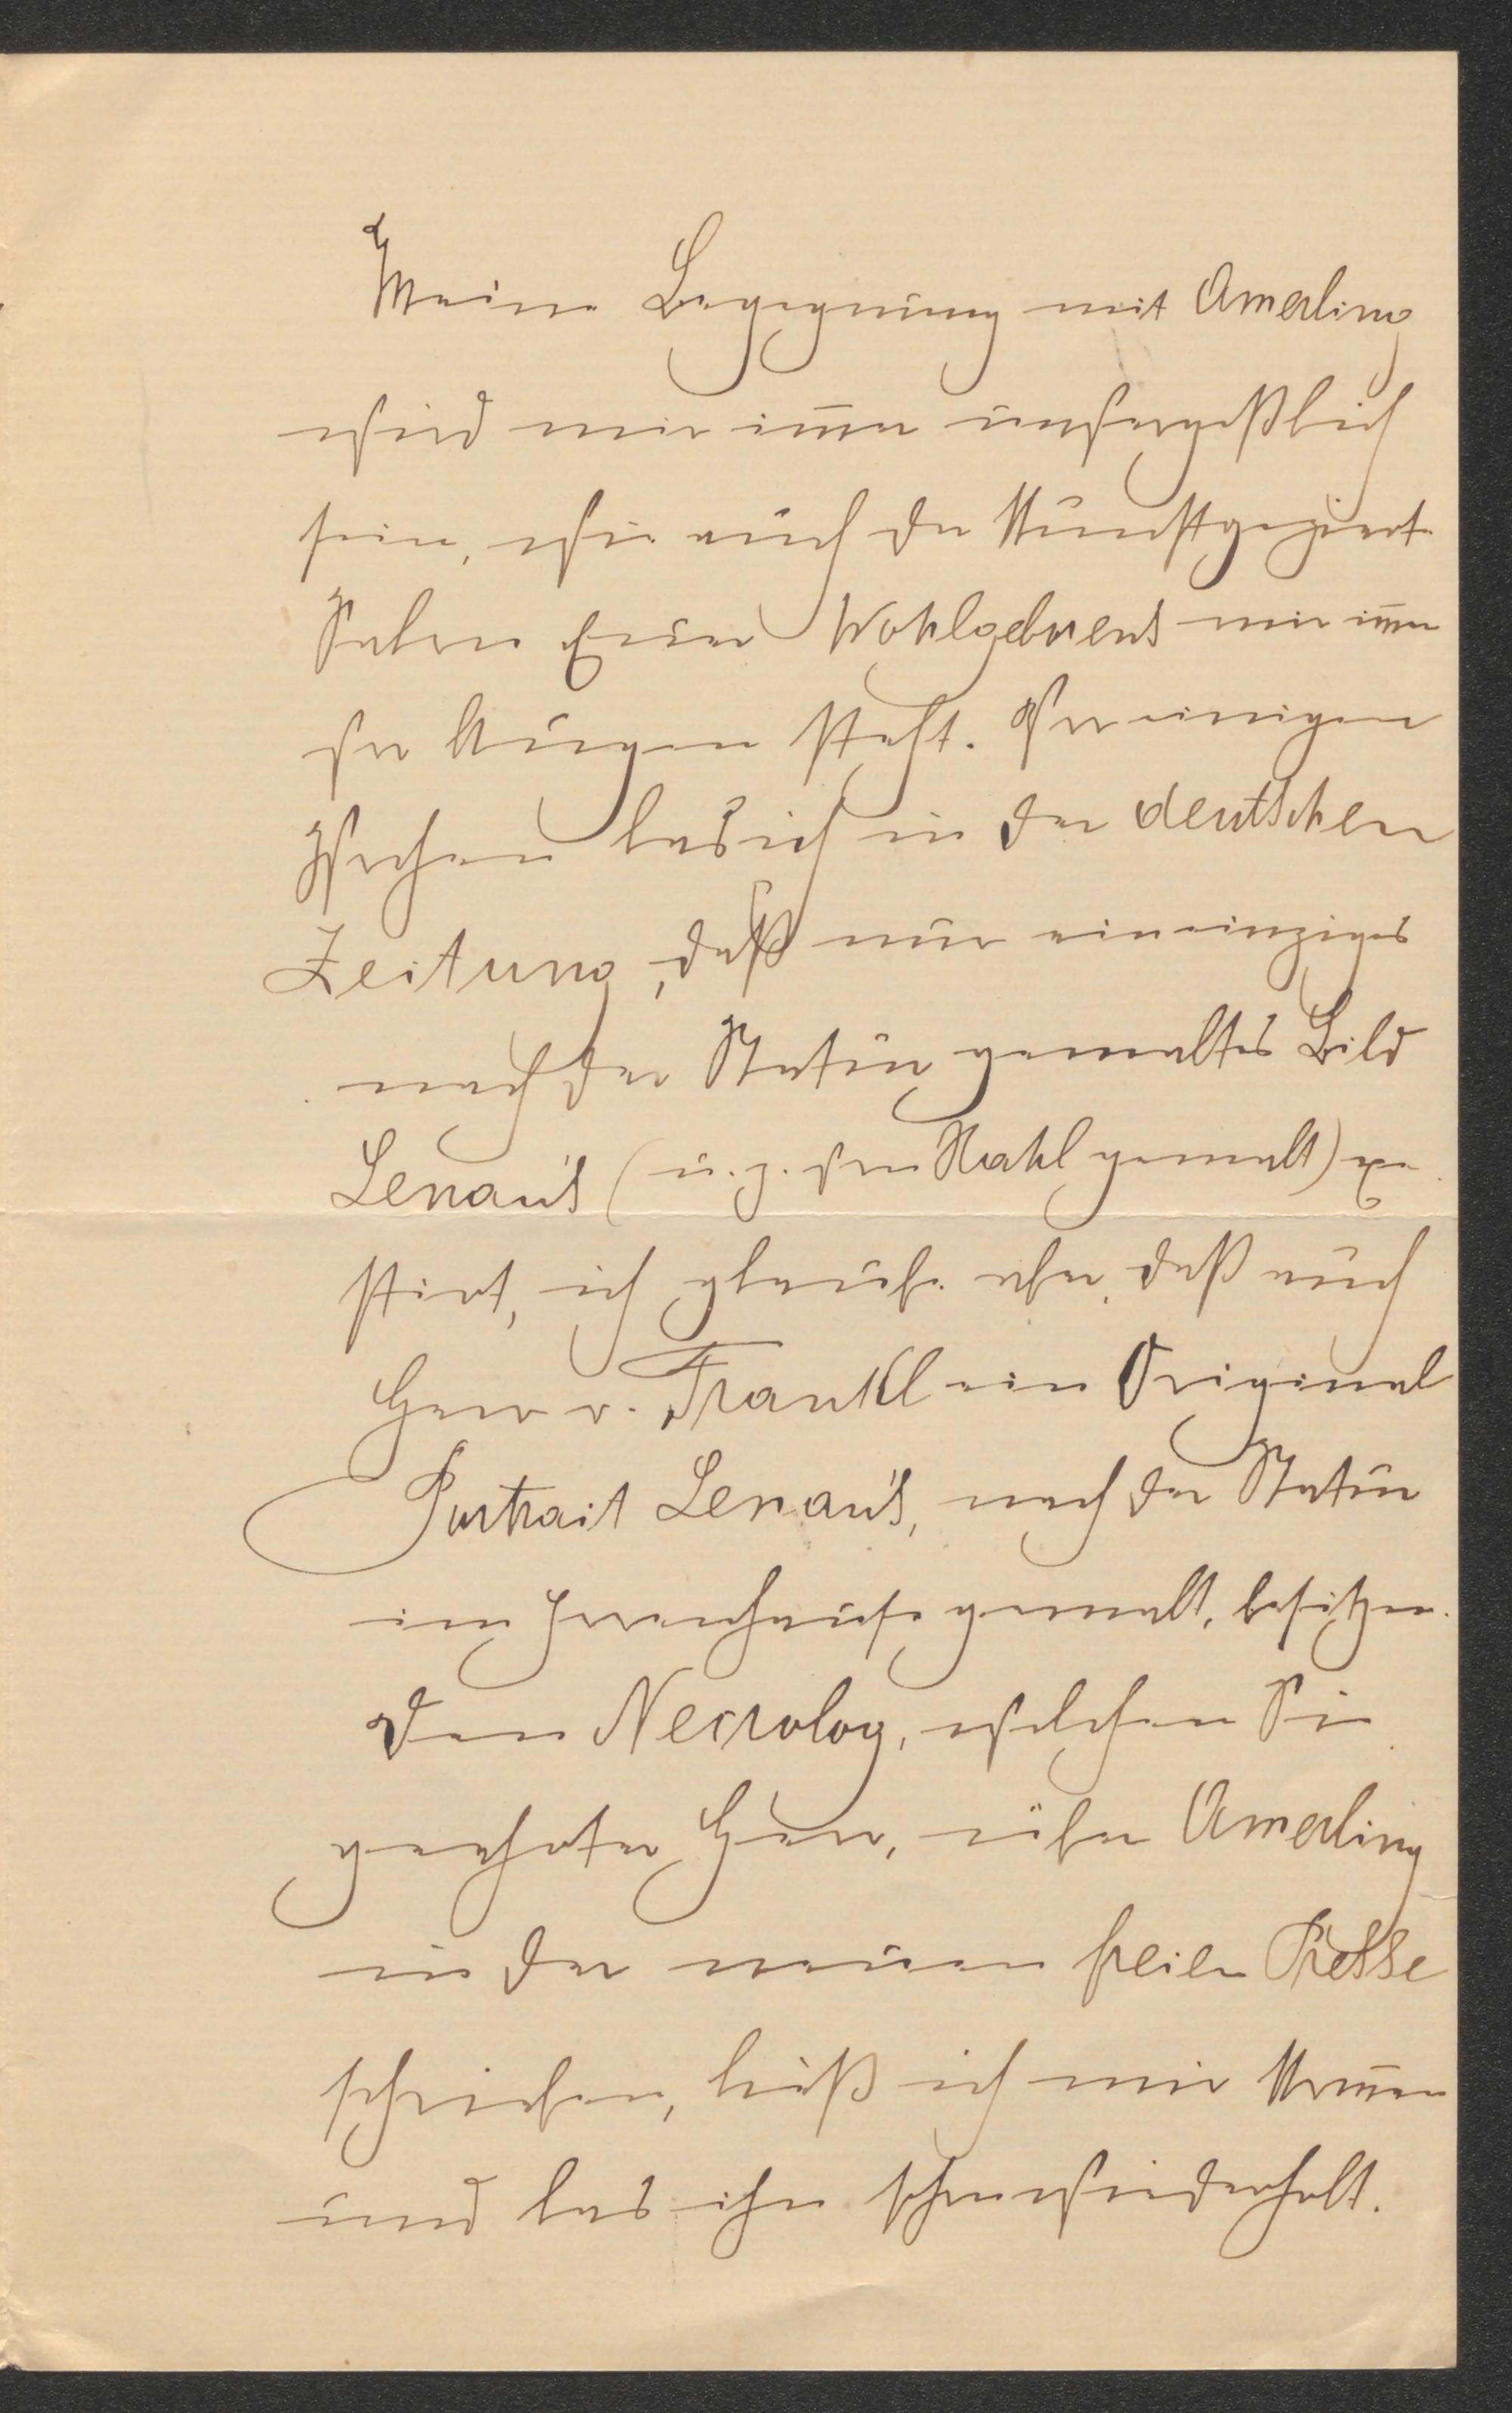 Meine Begegnung mit Amerling
wird mir im̅er unvergeßlich
sein, wie auch der Kunstgezierte
Salon Euer Wohlgeborens mir im̅er
vor Augen steht. Vor einigen
Wochen las ich in der deutschen
Zeitung, daß nur ein einziges
nach der Natur gemaltes Bild
Lenau's (u. z. von Rahl gemalt) exi
stirt, ich glaube aber, daß auch
Herr v. Frankl ein Original
Portrait Lenau's, nach der Natur
im Irrenhause gemalt, besitze.
Den Necrolog, welchen Sie
geehrter Herr, über Amerling
in der neuen freien Presse
schrieben, ließ ich mir kom̅en
und las ihn schon wiederholt.